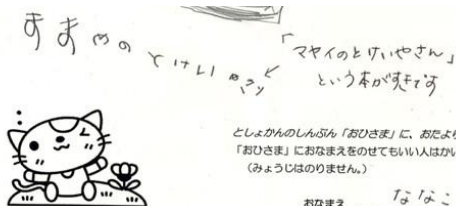 「マヤイのとけいやさん」
という本がすきです
としょかんのしんぶん「おひさま」に、おたより
「おひさま」におなまえをのせてもいい人はかい
（みょうじはのりません。）
おなまえ ななこ